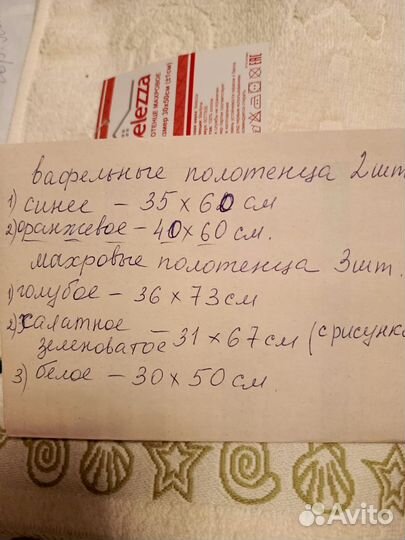 elezza
ПОЛОТЕНЦЕ МАХРОВОЕ
размер 30х50см (±1см)
вафельные полотенца 2шт
1) синее – 35 х 60 см
2) оранжевое – 40 х 60 см.
махровые полотенца 3шт.
1) голубое – 36 х 73 см
2) салатное –
зеленоватое 31 х 67 см (с рисунко
3) белое – 30 х 50 см.
Avito